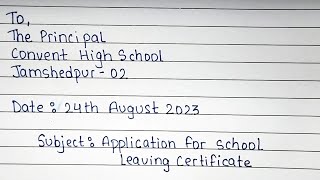 To,
The Principal
Convent High School
Jamshedpur-02
Date : 24th August 2023
Subject : Application for school
Leaving Certificate